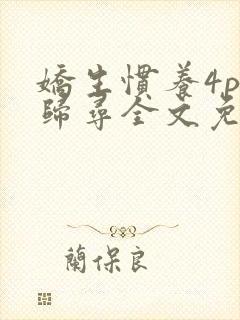 嬌生慣養4p
歸尋全文免
蘭保良